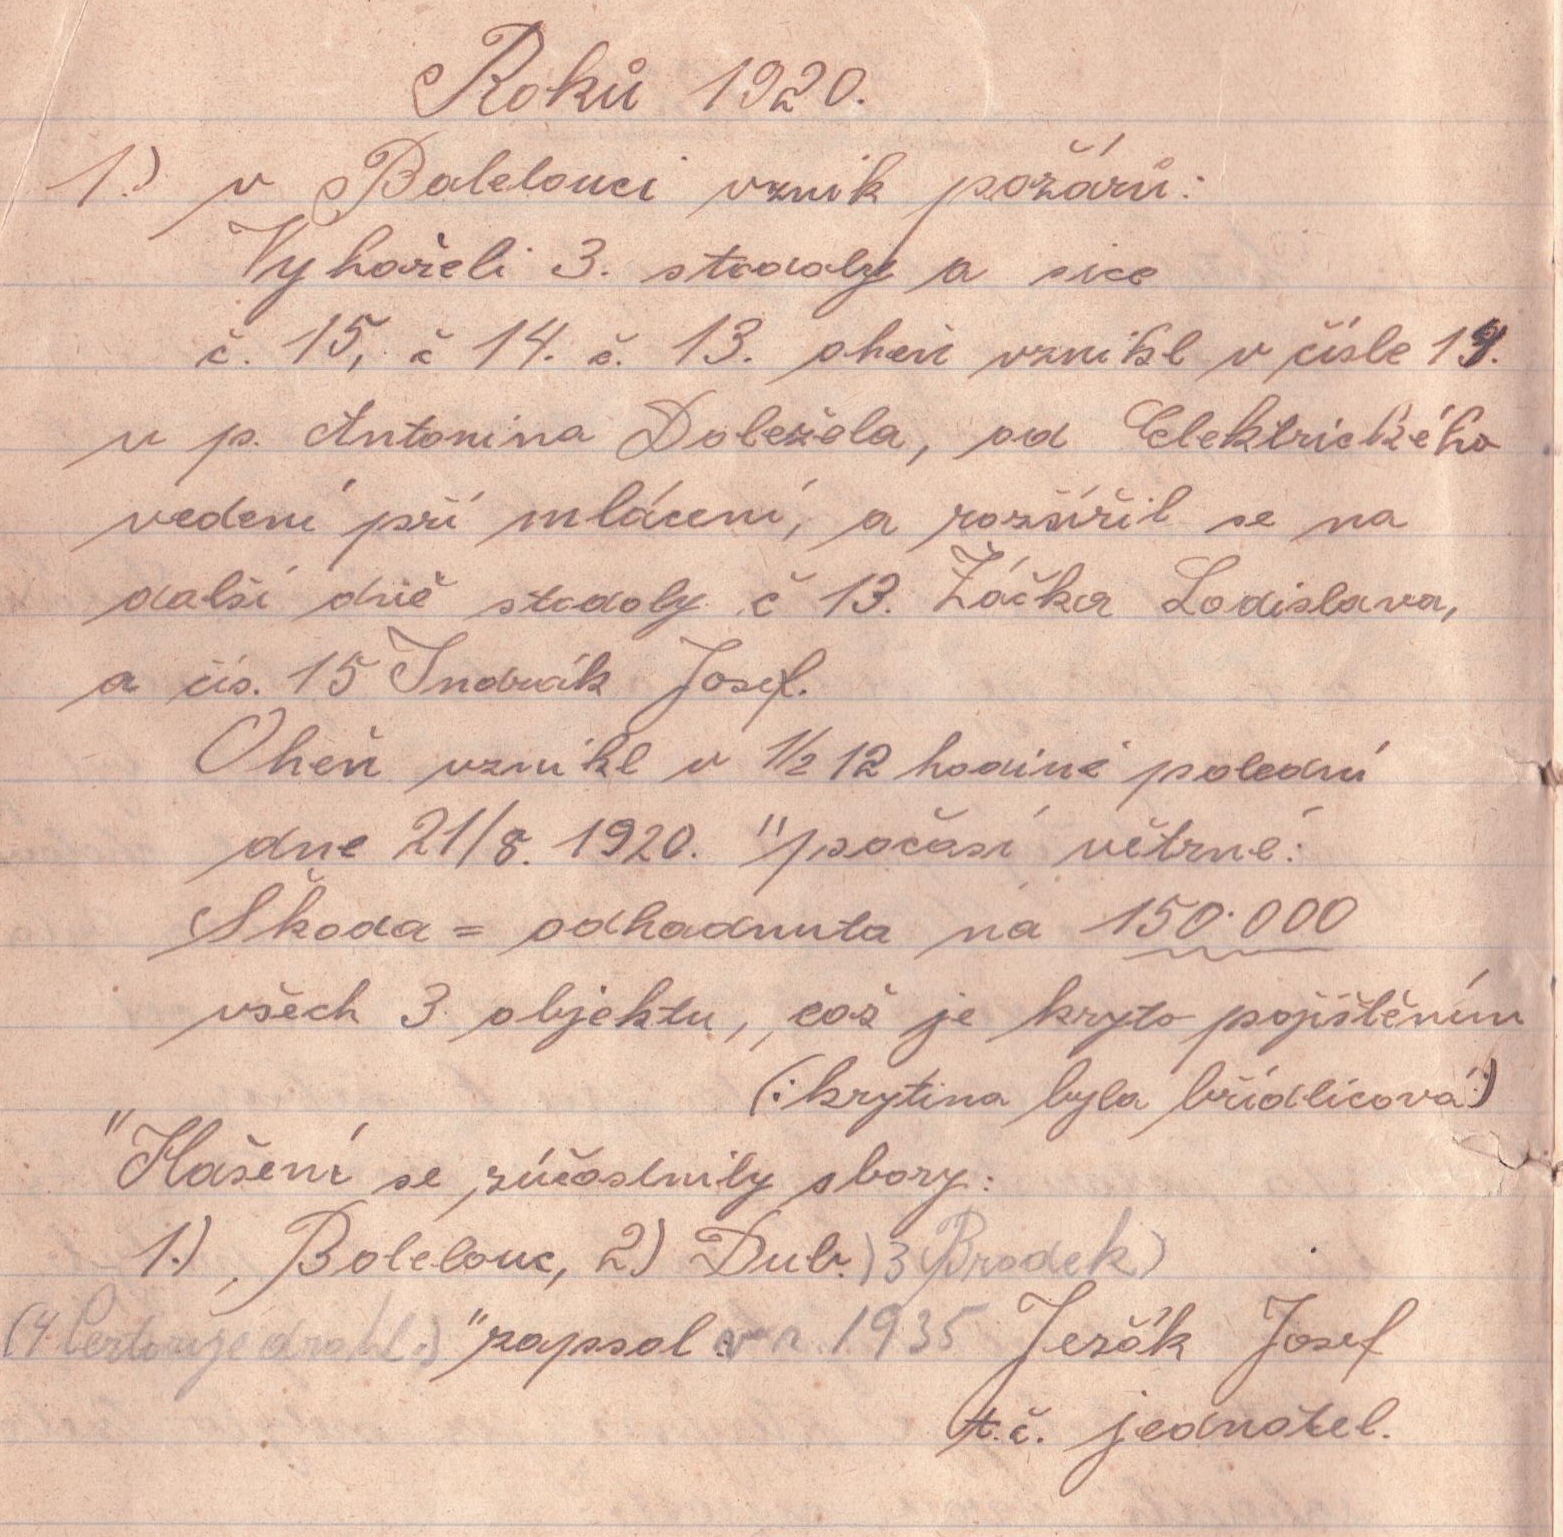 Roků 1920.
1.) v Bolelouci vznik požárů:
Vyhořeli 3. stodoly a sice
č. 15, č 14. č. 13. oheň vznikl v čísle 14.
u p. Antonina Doležela, od Elektrického
vedení při mlácení, a rozšířil se na
další dvě stodoly č 13. Žáčka Ladislava,
a čís. 15 Indrák Josef.
Oheň vznikl v 1/2 12 hodině polední
dne 21/8. 1920. "počasí větrné:
Škoda = odhadnuta na 150.000
všech 3 objektu, což je kryto pojištěním
(: krytina byla břidlicová:)
"Hašení se zúčastnily sbory:
1.), Bolelouc, 2) Dub.) 3 Brodek)
(4 "zapsal v r. 1935 Jezák Josef
t.č. jednatel.